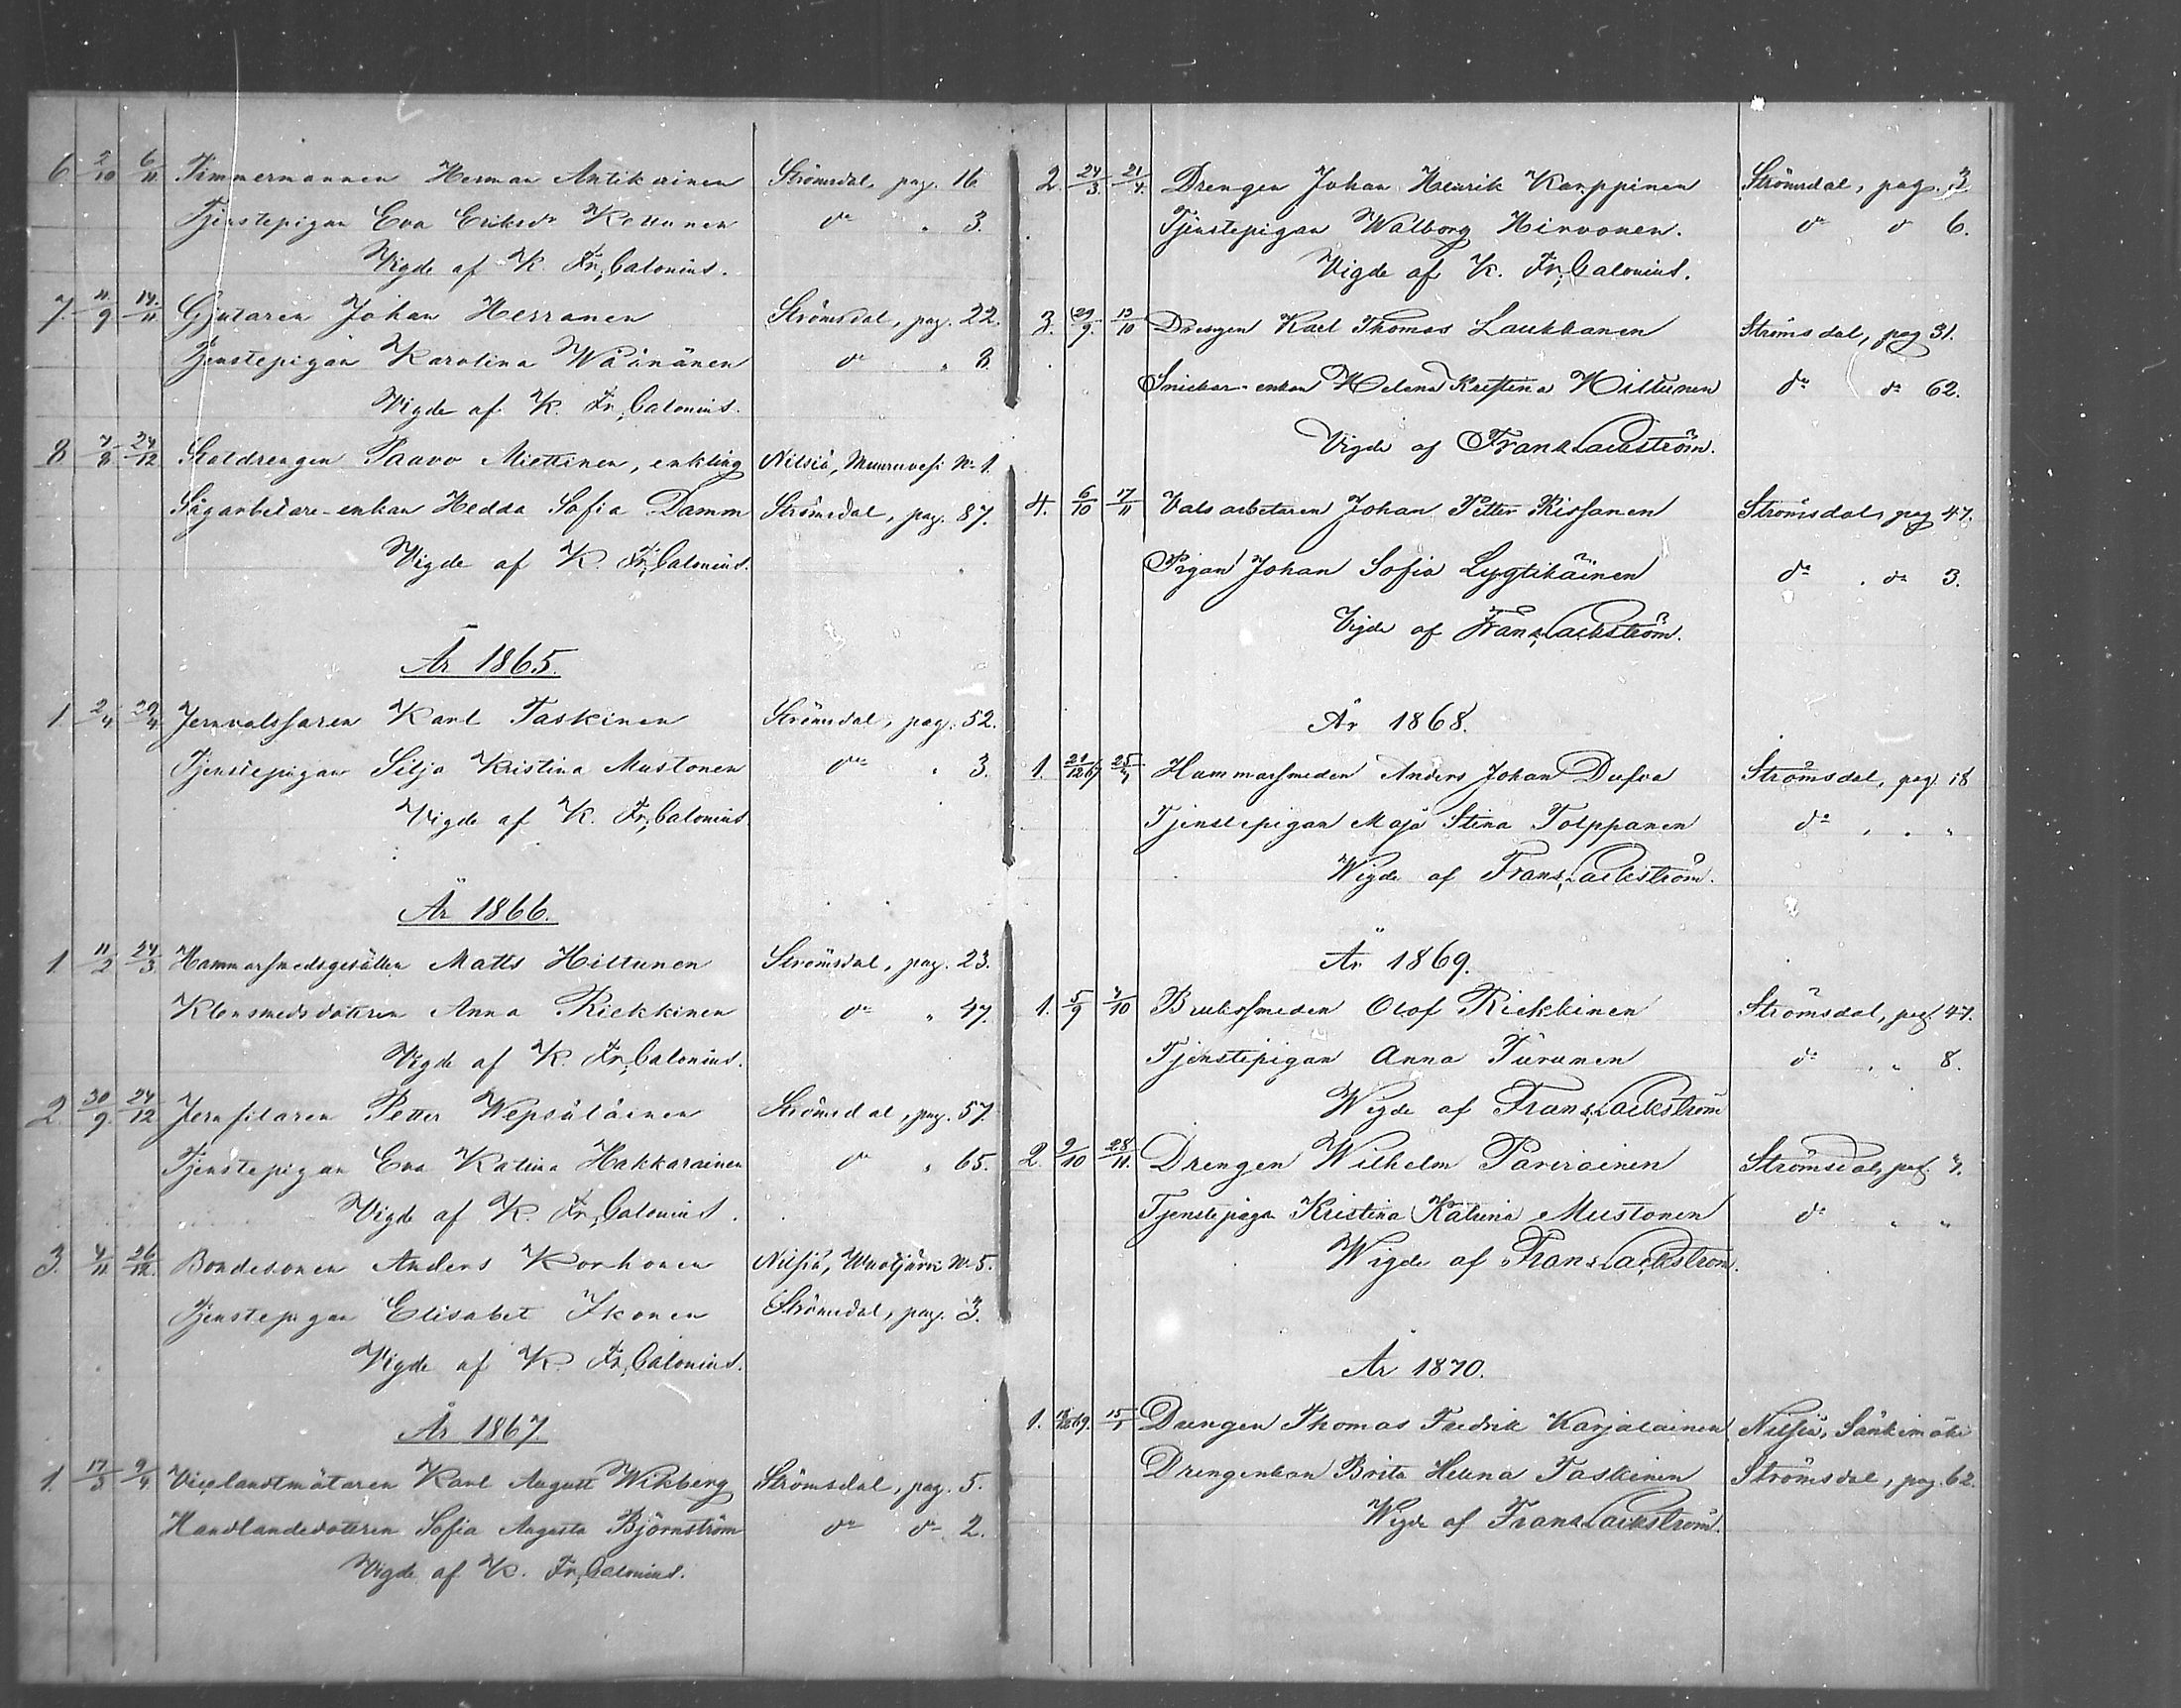 6. 2/10 6/11 Timmermannen Herman Antikainen Strömsdal, pag. 16
Tjenstepigan Eva Eriksdr Kettunen do " 3.
Vigde af K. Fr. Calonius.
7. 11/9 14/11 Gjutaren Johan Herranen Strömsdal, pag. 22.
Tjenstepigan Karolina Wäinänen do " 8.
Vigde af K. Fr. Calonius.
8 7/8 27/12 Stoldrengen Paavo Miettinen, enkling Nilsiä, Muuruvesi No 1.
Sågarbetare-enkan Hedda Sofia Damm Strömsdal, pag. 87.
Vigde af K. Fr. Calonius.
År 1865.
1. 2/4 29/4 Jernvalssaren Karl Taskinen Strömsdal, pag. 52.
Tjenstepigan Silja Kristina Mustonen do " 3.
Vigde af K. Fr. Calonius
År 1866.
1. 11/2 24/3 Hammarsmedsgesällen Matts Hiltunen Strömsdal, pag. 23.
Klensmedsdotren Anna Riekkinen do " 47.
Vigde af K. Fr. Calonius.
2. 30/9 24/12 Jernfilaren Petter Wepsäläinen Strömsdal, pag. 57.
Tjenstepigan Eva Katrina Hakkarainen do " 65.
Vigde af K. Fr. Calonius.
3. 4/11 26/12 Bondesonen Anders Korhonen Nilsiä, Wuotjärvi No 5.
Tjenstepigan Elisabet Ikonen Strömsdal, pag. 3.
Vigde af K. Fr. Calonius.
År 1867.
1. 17/3 9/4 Vicelandtmätaren Karl August Wikberg Strömsdal, pag. 5.
Handlandedotren Sofia Augusta Björnström do do 2.
Vigde af K. Fr. Calonius.
2. 24/3 21/4 Drengen Johan Henrik Karppinen Strömsdal, pag. 3
Tjenstepigan Walborg Hirvonen. do do 6.
Vigde af K. Fr. Calonius.
3. 29/9 13/10 Drengen Karl Thomas Laukkanen Strömsdal, pag 31.
Snickar-enkan Helena Kristina Hiltunen do do 62.
Vigde af Frans Lackström.
4. 6/10 17/11 Valsarbetaren Johan Petter Rissanen Strömsdal, pag 47.
Pigan Johan Sofia Lygtikäinen do do 3.
Vigde af Frans Lackström.
År 1868.
1. 21/12 67 25/4 Hammarsmeden Anders Johan Dufva Strömsdal, pag. 18
Tjenstepigan Maja Stina Tolppanen do " "
Wigde af Frans Lackström.
År 1869.
1. 5/9 7/10 Brukssmeden Olof Riekkinen Strömsdal, pag. 47.
Tjenstepigan Anna Turunen do " 8.
Wigde af Frans Lackström
2. 9/10 28/11 Drengen Wilhelm Parviainen Strömsdal, pag. 7.
Tjenstepigan Kristina Katrina Mustonen do " "
Wigde af Frans Lackström.
År 1870.
1. 69. Drengen Thomas Fredrik Karjalainen Nilsiä, Sänkimäki
Drengenkan Brita Helena Taskinen Strömsdal, pag. 62.
Wigde af Frans Lackström.